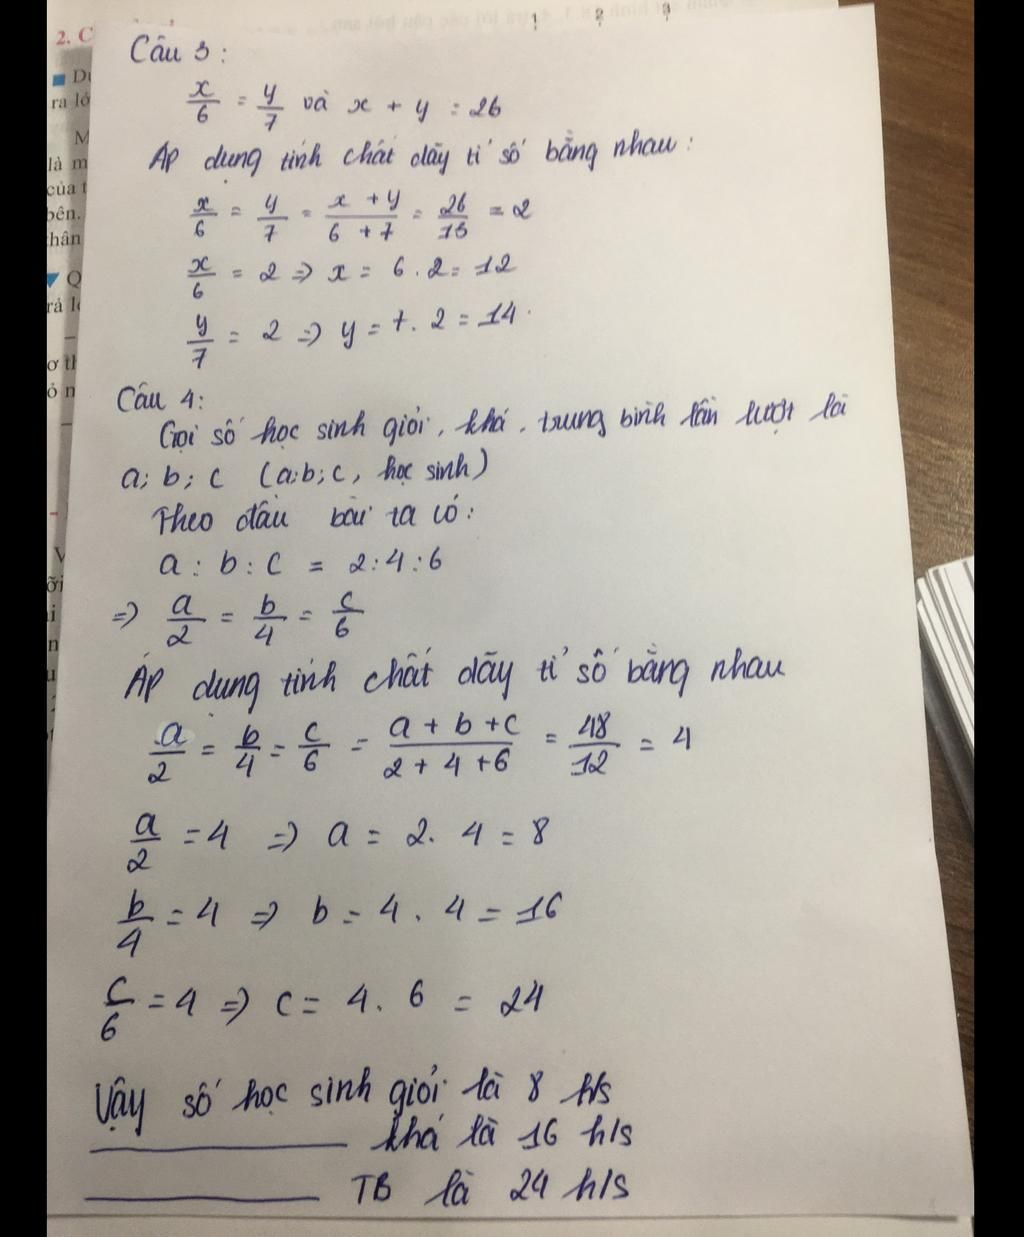 2. C
1 2 3
Du
ra lớ
M
là m
của t
bên.
thân
Q
rả lờ
ơ th
ỏ n
Câu 3:
x/6 = y/7 và x + y = 26
Áp dụng tính chất dãy tỉ số bằng nhau:
x/6 = y/7 = x + y/6 + 7 = 26/13 = 2
x/6 = 2 => x = 6 . 2 = 12
y/7 = 2 => y = 7 . 2 = 14
Câu 4:
Gọi số học sinh giỏi, khá, trung bình lần lượt là
a; b; c (a;b;c, học sinh)
Theo đầu bài ta có:
a : b : c = 2:4:6
=> a/2 = b/4 = c/6
Áp dụng tính chất dãy tỉ số bằng nhau
a/2 = b/4 = c/6 = a + b + c/2 + 4 + 6 = 48/12 = 4
a/2 = 4 => a = 2. 4 = 8
b/4 = 4 => b = 4 . 4 = 16
c/6 = 4 => c = 4. 6 = 24
Vậy số học sinh giỏi là 8 h/s
khá là 16 h/s
TB là 24 h/s